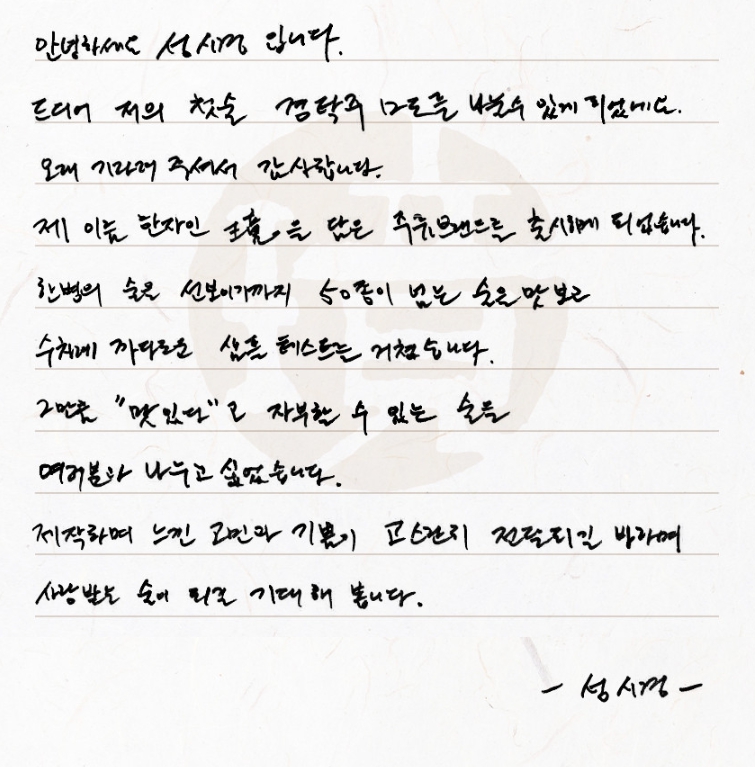 안녕하세요 성시경 입니다.
드디어 저의 첫술 경탁주 12도를 나눌수 있게 되었네요.
오래 기다려 주셔서 감사합니다.
제 이름 한자인 을 담은 주류브랜드를 출시하게 되었습니다.
한병의 술을 선보이기까지 50종이 넘는 술을 맛보고
수차례 까다로운 샘플 테스트를 거쳤습니다.
그만큼 "맛있다"고 자부할 수 있는 술을
여러분과 나누고 싶었습니다.
제작하며 느낀 고민과 기쁨이 고스란히 전달되길 바라며
사랑받는 술이 되길 기대해 봅니다.
- 성시경 -